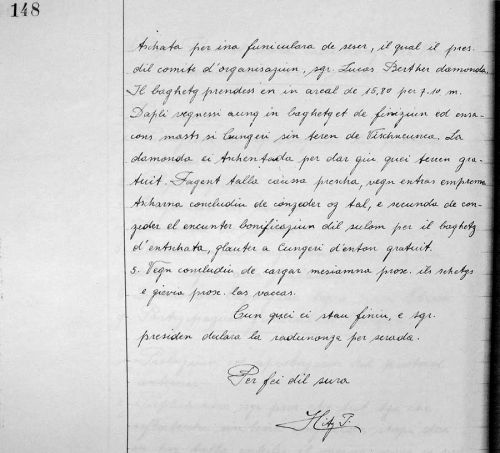 148
tschata per ina funiculara de seser, il qual il pres.
dil comite d'organisaziun, sgr. Lucas Berther damonda.
Il baghetg prendess en in areal de 15,80 per 7.10 m.
Dapli vegnessi aung in baghetget de finiziun ed ensa-
cons masts si Cungeri sin teren de Vischneunca. La
damonda ei per dar giu quei teren gra-
tuit. Fagent talla caussa prescha, vegn entras emprema
concludiu de conzeder og tal, e secunda de con-
zeder el encunter bonificaziun dil sulom per il baghetg
d'entschata, glauter a Cungeri d'enton gratuit.
5. Vegn concludiu de cargar mesiamna prox. ils schetgs
e gievia prox. las vaccas.
Cun quei ei stau finiu, e sgr.
presiden declara la radunonza per serada.
Per fei dil sura
Hitz T.